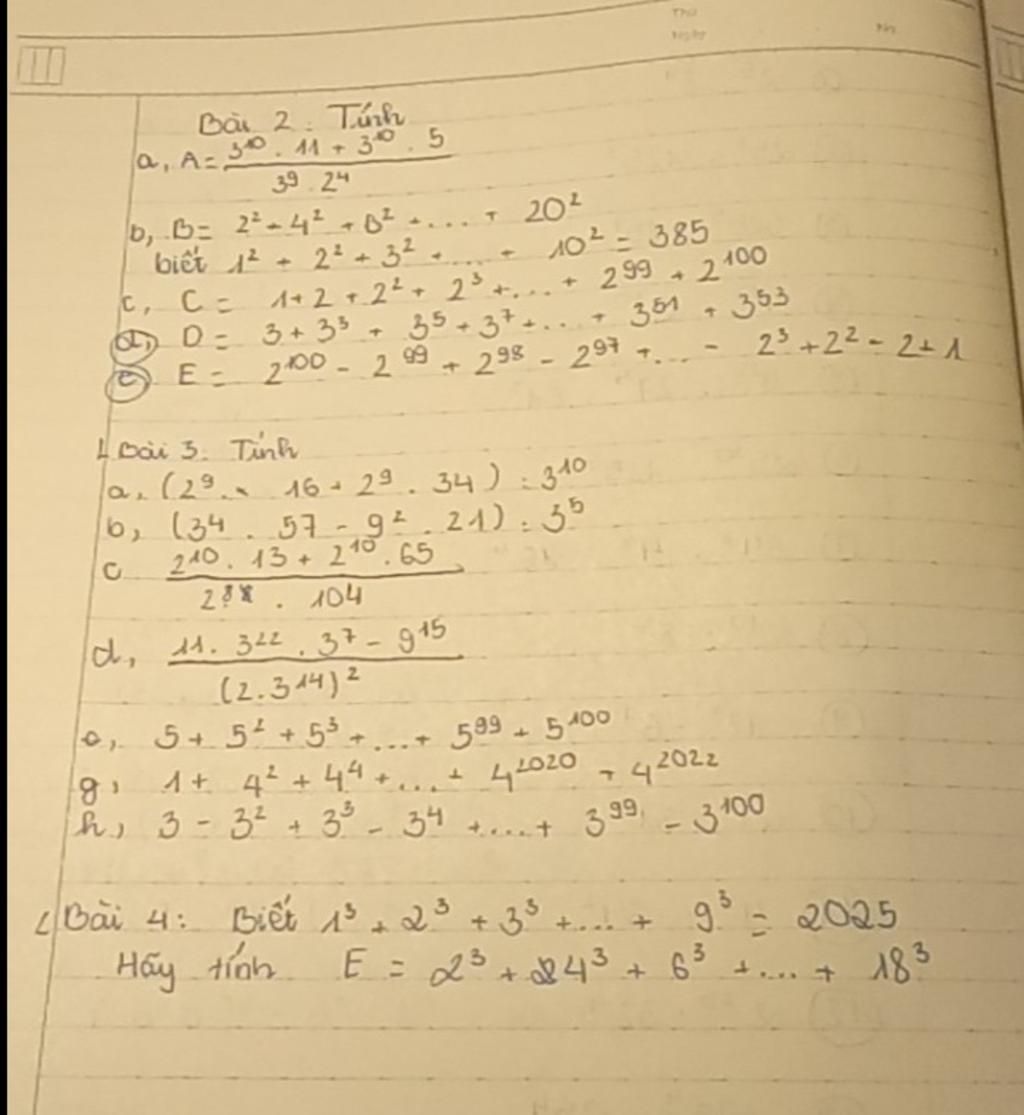 Thứ
Ngày
No
Bài 2: Tính
a, A = \frac{3^{10} . 11 + 3^{10} . 5}{3^9 . 2^4}
b, B = 2^2 + 4^2 + 6^2 + .... + 20^2
biết 1^2 + 2^2 + 3^2 + .... + 10^2 = 385
c, C = 1 + 2 + 2^2 + 2^3 + ... + 2^{99} + 2^{100}
d, D = 3 + 3^3 + 3^5 + 3^7 + ... + 3^{51} + 3^{53}
e, E = 2^{100} - 2^{99} + 2^{98} - 2^{97} + ... - 2^3 + 2^2 - 2 + 1
Bài 3: Tính
a, (2^9 . 16 + 2^9 . 34) : 3^{10}
b, (3^4 . 57 - 9^2 . 21) : 3^5
c \frac{2^{10} . 13 + 2^{10} . 65}{2^8 . 104}
d, \frac{11 . 3^{22} . 3^7 - 9^{15}}{(2 . 3^{14})^2}
e, 5 + 5^2 + 5^3 + ... + 5^{99} + 5^{100}
g, 1 + 4^2 + 4^4 + ... + 4^{2020} + 4^{2022}
h, 3 - 3^2 + 3^3 - 3^4 + .... + 3^{99} - 3^{100}
Bài 4: Biết 1^3 + 2^3 + 3^3 + .... + 9^3 = 2025
Hãy tính E = 2^3 + 4^3 + 6^3 + .... + 18^3